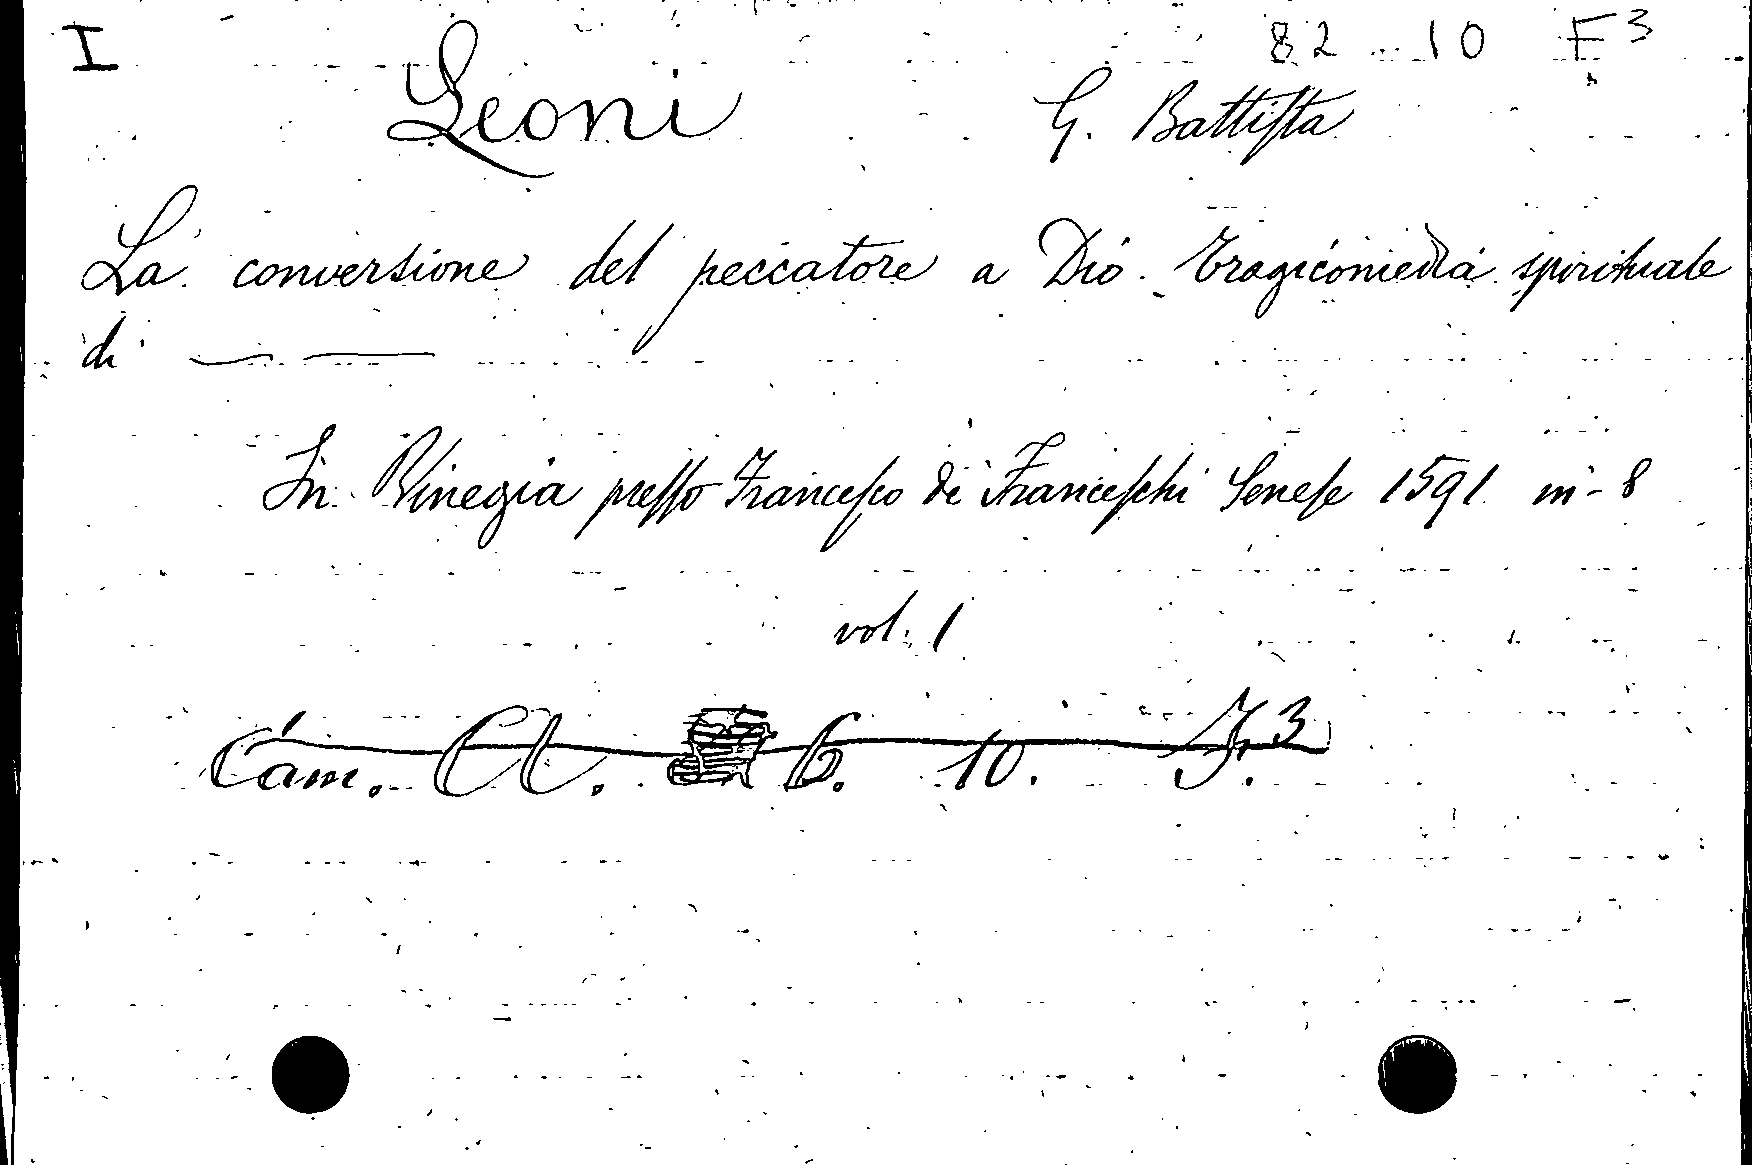 I 82 10 F3
Leoni G. Battiſta
La conversione del peccatore a Dio. Tragicomedia spirituale
di
In Vinegia preſſo Franceſco di Franceſchi Seneſe 1591 in-8
vol. 1
Cam. 6. 10. F.3